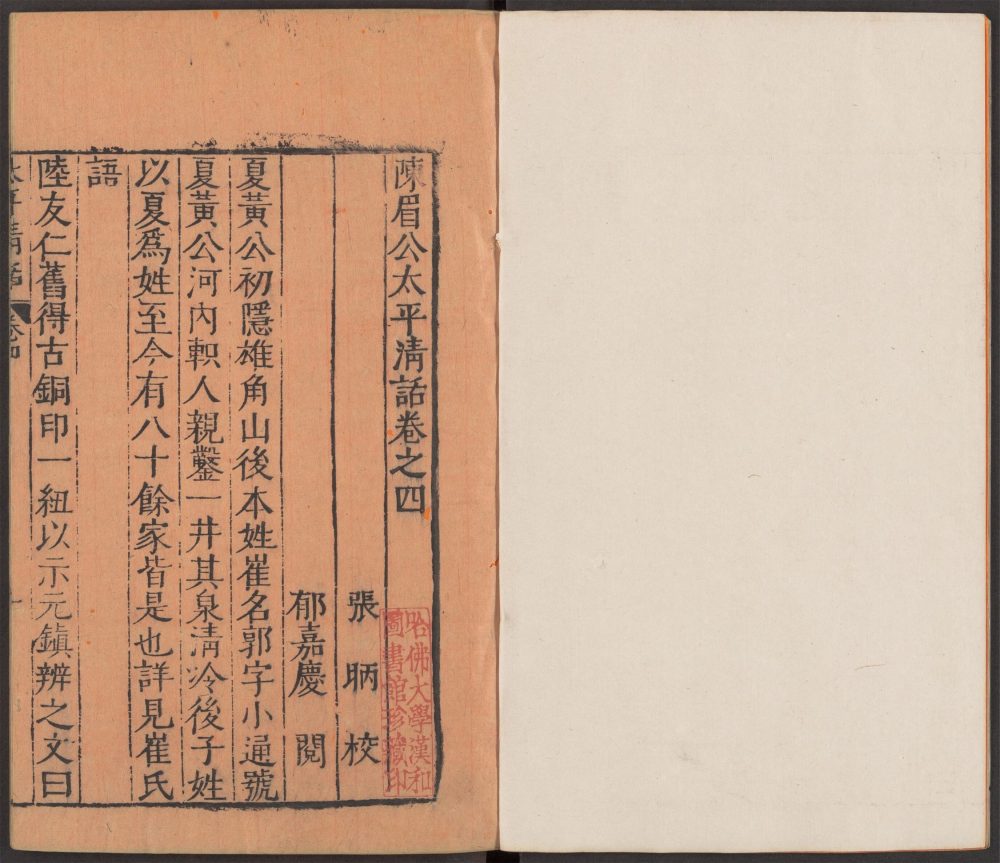 陳眉公太平清話卷之四
張昞校
郁嘉慶閱
夏黃公初隱雄角山後本姓崔名郭字小通號
夏黃公河內軹人親鑿一井其泉清冷後子姓
以夏爲姓至今有八十餘家皆是也詳見崔氏
語
陸友仁舊得古銅印一紐以示元鎮辨之文曰
太平清話 卷四
哈佛大學漢和
圖書館珍藏印